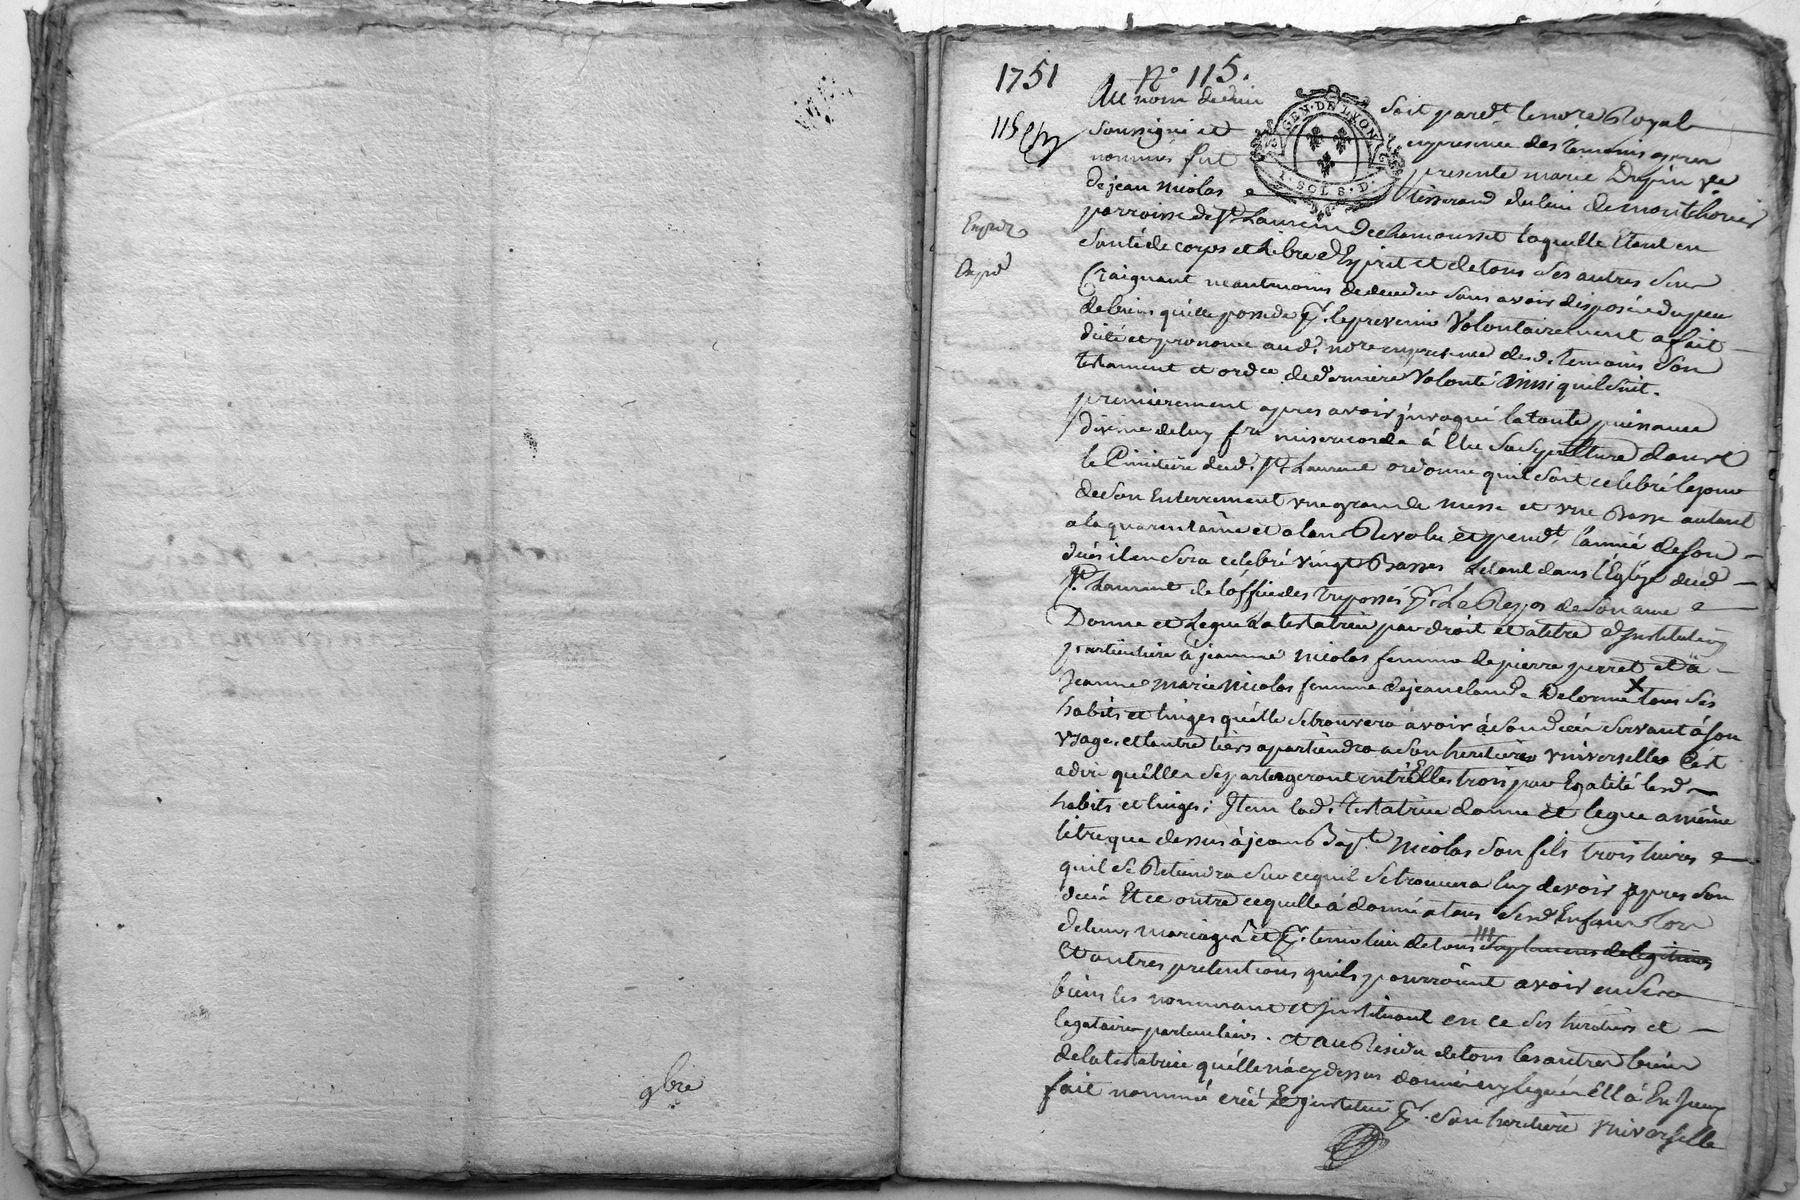 9bre
1751
N° 115.
115
Exped
Exped
GEN. DE LYON
1. SOLS. D.
Au nom de dieu soit pard.t le no.re Royal
soussigné et en presence des temoins apres
nommés fut presente marie Dupin v.e
de jean nicolas tisserand du lieu de montchorier
parroisse de S.t Laurent de chamousset laquelle Etant en
santé de corps et Libre d'Esprit et de tous ses autres sens
Craignant neantmoins de deceder sans avoir disposé du peu
de biens qu'elle possede p.r le prevenir Volontairement a fait
dicté et prononcé aud. no.re en presence desd. temoins son
testament et ord.ce de derniere Volonté ainsi quil suit.
premierement apres avoir jnvoqué la toute puissance
divine de luy f.re misericorde à Elu sa sepulture dans
le Cimitiere dud. S.t Laurent ordonne quil soit celebré le jour
de son Enterrement vne grande messe et vne Basse autant
a la quarantaine et a lan Revolu, et pend.t l'année de son
décés il en sera celebré vingt Basses Letout dans l'Eglise dud
S.t Laurent de l'office des trepassés p.r Le Repos de son ame
Donne et Legue La testatrice par droit et a titre d'Jnstitution
particuliere à jeanne nicolas femme de pierre perret et à
Jeanne marie nicolas femme de jean claude Delorme X tous ses
habits et linges qu'elle se trouvera avoir à son décés servant à son
vsage, et lautre tiers apartiendra a son heritiere vniverselle C'est
a dire qu'elles se partageront entr'Elles trois par Egalité lesd
habits et linges; Jtem lad. testatrice donne et legue a même
titre que dessus à jean Bap.te Nicolas son fils trois livres
quil se Retiendra sur ce quil se trouvera luy devoir apres son
décés Et ce outre ce quelle a donné a tous sesd Enfans Lors
de leurs mariages et p.r tenir lieu de tous
Et autres pretentions quils pourroient avoir en sesd
biens les nommant et jnstituant en ce ses heritiers et
legataires particuliers. et au Residu de tous les autres biens
de la testatrice qu'elle n'a cy dessus donné ny legué Ell à En Jceux
fait nommé créé Et jnstitué p.r son heritiere vniverselle